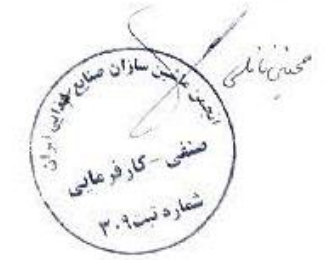 انجمن ماشین سازان صنایع غذایی ایران
صنفی - کارفرمایی
شماره ثبت ۳۰۹